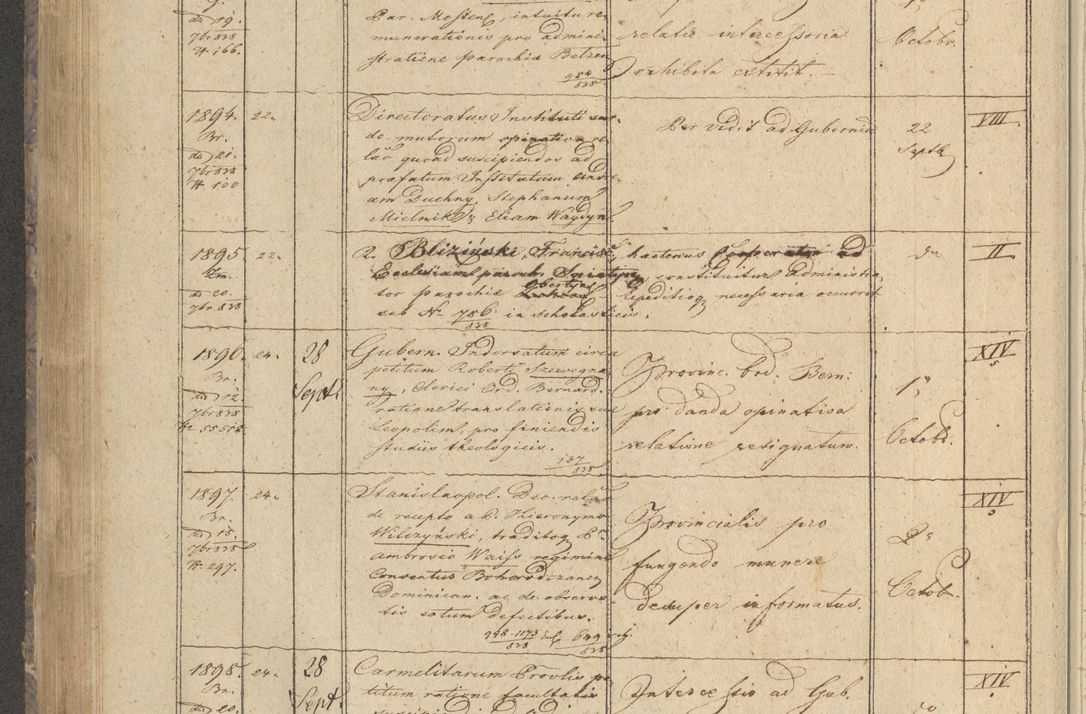 dd 19.
7br 838
# 166.
Par. Mostens, intuitu re
munerationis pro admini
stratione parochiæ Betzen
984/838
relatio intercessoria
exhibita extitit.
Octobr.
1894. 22.
Br.
dd 21.
7br 838
# 100
Directoratus Instituti sur
do-mutorum opinativa re
lao quoad suscipiendos ad
præfatum Institutum Andre
am Duchny, Stephanum
Mielnik, & Eliam Waydyn
Per vidit ad Gubernia
22
Septbr
VIII
1895 22.
dd 20.
7br 838
R. Bliziński, Francisc. hactenus Cooperator ad
Ecclesiam paroch. Sniatyn, constituitur Administra
tor parochiæ Obertyn Expeditioq necessaria occurrit
sub No 786/838 in scholasticis.
do
II
1896. 24. 28
Br. Septb
dd 12.
7br 838
# 55512
Gubern. Indorsatum circa
petitum Roberti Szewegna
ny, Clerici Ord. Bernard.
ratione translationis suæ
Leopolim, pro finiendis
studiis theologicis.
137/838
Provinc. Ord. Bern:
pro danda opinativa
relatione resignatum.
1a
Octobr.
XIV
1897. 24.
Br.
dd 15.
7br 838
# 297.
Stanislaopol. Dec. relao
de recepto a P. Hieronymo
Wilczyński, traditoq Pri
Ambrosio Waiss regimine
Conventus Bohorodczanen
Dominican. ac de observa
tis eotum defectibus.
948.1173/838 Ex 649/838
Provincialis pro
fungendo munere
desuper informatus.
2a
Octob.
XIV
1898. 24. 28
Br. Sept.
dd 20.
Carmelitarum Provlis pe
titum ratione facultatis
Intercessio ad Gub.
XIV